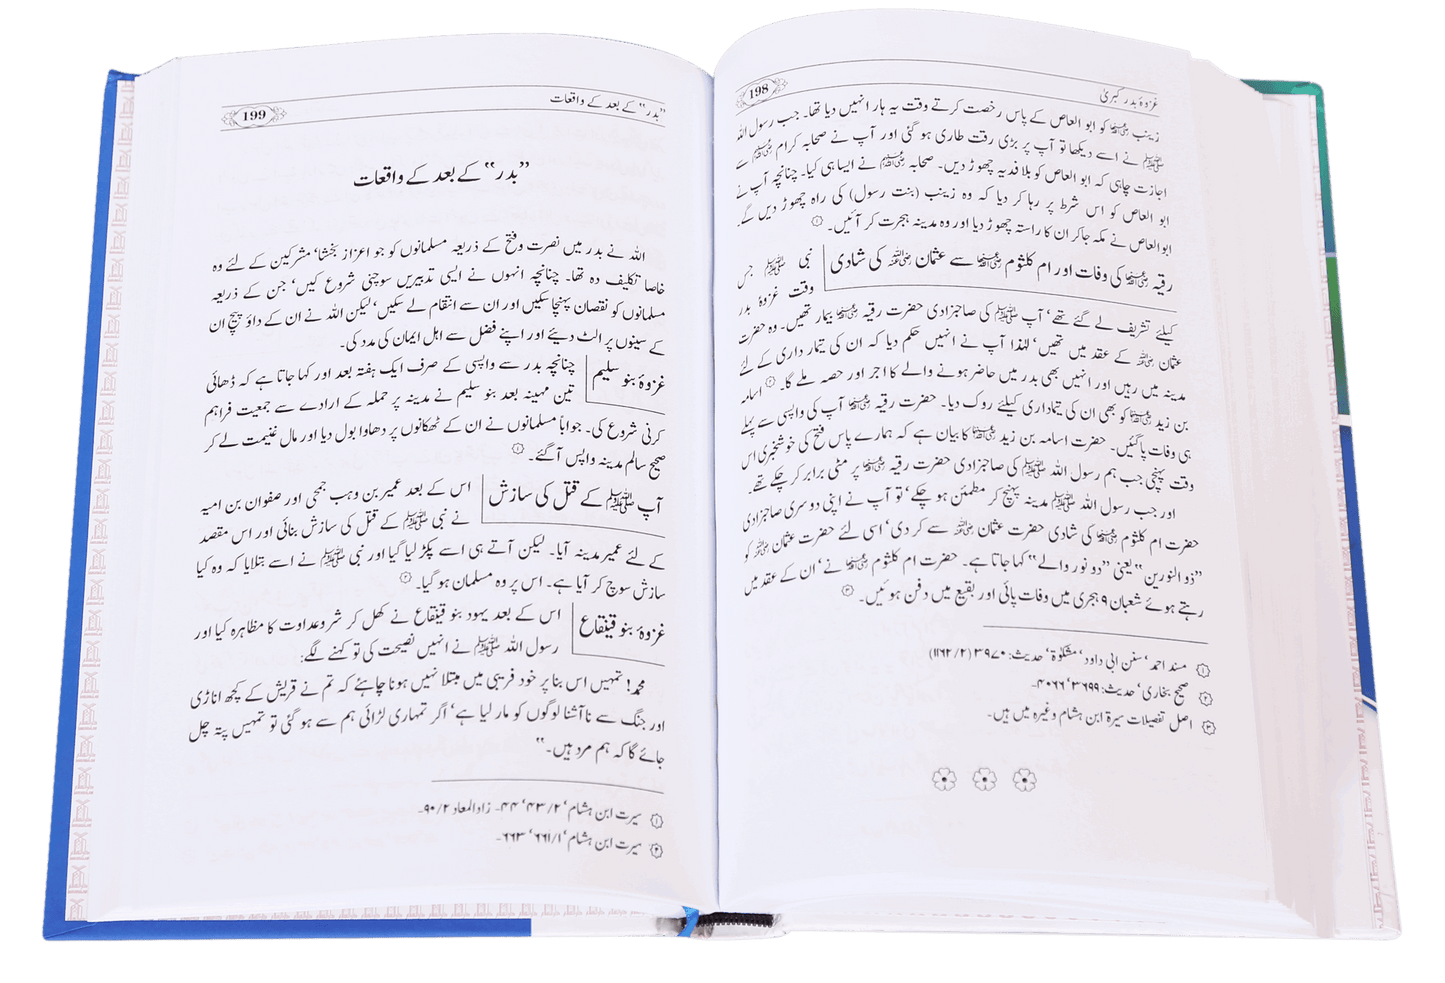 غزوۂ بدر کبریٰ
198
زینب رضی اللہ عنہا کو ابو العاص کے پاس رخصت کرتے وقت یہ ہار انہیں دیا تھا۔ جب رسول اللہ
ﷺ نے اسے دیکھا تو آپ پر بڑی رقت طاری ہو گئی اور آپ نے صحابہ کرام رضی اللہ عنہم سے
اجازت چاہی کہ ابو العاص کو بلا فدیہ چھوڑ دیں۔ صحابہ رضی اللہ عنہم نے ایسا ہی کیا۔ چنانچہ آپ نے
ابو العاص کو اس شرط پر رہا کر دیا کہ وہ زینب (بنت رسول) کی راہ چھوڑ دیں گے۔
ابو العاص نے مکہ جاکر ان کا راستہ چھوڑ دیا اور وہ مدینہ ہجرت کر آئیں۔ ①
رقیہ رضی اللہ عنہا کی وفات اور ام کلثوم رضی اللہ عنہا سے عثمان رضی اللہ عنہ کی شادی
نبی ﷺ جس
وقت غزوۂ بدر
کیلئے تشریف لے گئے تھے‘ آپ ﷺ کی صاحبزادی حضرت رقیہ رضی اللہ عنہا بیمار تھیں۔ وہ حضرت
عثمان رضی اللہ عنہ کے عقد میں تھیں‘ لہٰذا آپ نے انہیں حکم دیا کہ ان کی تیمار داری کے لئے
مدینہ میں رہیں اور انہیں بھی بدر میں حاضر ہونے والے کا اجر اور حصہ ملے گا۔ ② اسامہ
بن زید رضی اللہ عنہ کو بھی ان کی تیمارداری کیلئے روک دیا۔ حضرت رقیہ رضی اللہ عنہا آپ کی واپسی سے پہلے
ہی وفات پاگئیں۔ حضرت اسامہ بن زید رضی اللہ عنہ کا بیان ہے کہ ہمارے پاس فتح کی خوشخبری اس
وقت پہنچی جب ہم رسول اللہ ﷺ کی صاحبزادی حضرت رقیہ رضی اللہ عنہا پر مٹی برابر کر چکے تھے۔
اور جب رسول اللہ ﷺ مدینہ پہنچ کر مطمئن ہو چکے‘ تو آپ نے اپنی دوسری صاحبزادی
حضرت ام کلثوم رضی اللہ عنہا کی شادی حضرت عثمان رضی اللہ عنہ سے کر دی‘ اسی لئے حضرت عثمان رضی اللہ عنہ کو
”ذو النورین“ یعنی ”دو نور والے“ کہا جاتا ہے۔ حضرت ام کلثوم رضی اللہ عنہا نے‘ ان کے عقد میں
رہتے ہوئے شعبان ۹ ہجری میں وفات پائی اور بقیع میں دفن ہوئیں۔ ③
① مسند احمد‘ سنن ابی داود‘ مشکوٰۃ‘ حدیث: ۳۹۷۰ (۱۱۶۲/۲)
② صحیح بخاری‘ حدیث: ۳۶۹۹‘ ۴۰۶۶۔
③ اصل تفصیلات سیرۃ ابن ہشام وغیرہ میں ہیں۔
”بدر“ کے بعد کے واقعات
199
”بدر“ کے بعد کے واقعات
اللہ نے بدر میں نصرت وفتح کے ذریعہ مسلمانوں کو جو اعزاز بخشا‘ مشرکین کے لئے وہ
خاصا تکلیف دہ تھا۔ چنانچہ انہوں نے ایسی تدبیریں سوچنی شروع کیں‘ جن کے ذریعہ
مسلمانوں کو نقصان پہنچا سکیں اور ان سے انتقام لے سکیں‘ لیکن اللہ نے ان کے داؤ پیچ ان
کے سینوں پر الٹ دیئے اور اپنے فضل سے اہل ایمان کی مدد کی۔
غزوۂ بنو سلیم
چنانچہ بدر سے واپسی کے صرف ایک ہفتہ بعد اور کہا جاتا ہے کہ ڈھائی
تین مہینہ بعد بنو سلیم نے مدینہ پر حملہ کے ارادے سے جمعیت فراہم
کرنی شروع کی۔ جواباً مسلمانوں نے ان کے ٹھکانوں پر دھاوا بول دیا اور مال غنیمت لے کر
صحیح سالم مدینہ واپس آگئے۔ ①
آپ ﷺ کے قتل کی سازش
اس کے بعد عمیر بن وہب جمحی اور صفوان بن امیہ
نے نبی ﷺ کے قتل کی سازش بنائی اور اس مقصد
کے لئے عمیر مدینہ آیا۔ لیکن آتے ہی اسے پکڑ لیا گیا اور نبی ﷺ نے اسے بتلایا کہ وہ کیا
سازش سوچ کر آیا ہے۔ اس پر وہ مسلمان ہو گیا۔ ②
غزوۂ بنو قینقاع
اس کے بعد یہود بنو قینقاع نے کھل کر شروعداوت کا مظاہرہ کیا اور
رسول اللہ ﷺ نے انہیں نصیحت کی تو کہنے لگے:
محمد! تمہیں اس بنا پر خود فریبی میں مبتلا نہیں ہونا چاہئے کہ تم نے قریش کے کچھ اناڑی
اور جنگ سے ناآشنا لوگوں کو مار لیا ہے‘ اگر تمہاری لڑائی ہم سے ہو گئی تو تمہیں پتہ چل
جائے گا کہ ہم مرد ہیں۔“
① سیرت ابن ہشام‘ ۴۳/۲‘ ۴۴۔ زاد المعاد ۹۰/۲۔
② سیرت ابن ہشام‘ ۶۶۱/۱‘ ۶۶۳۔